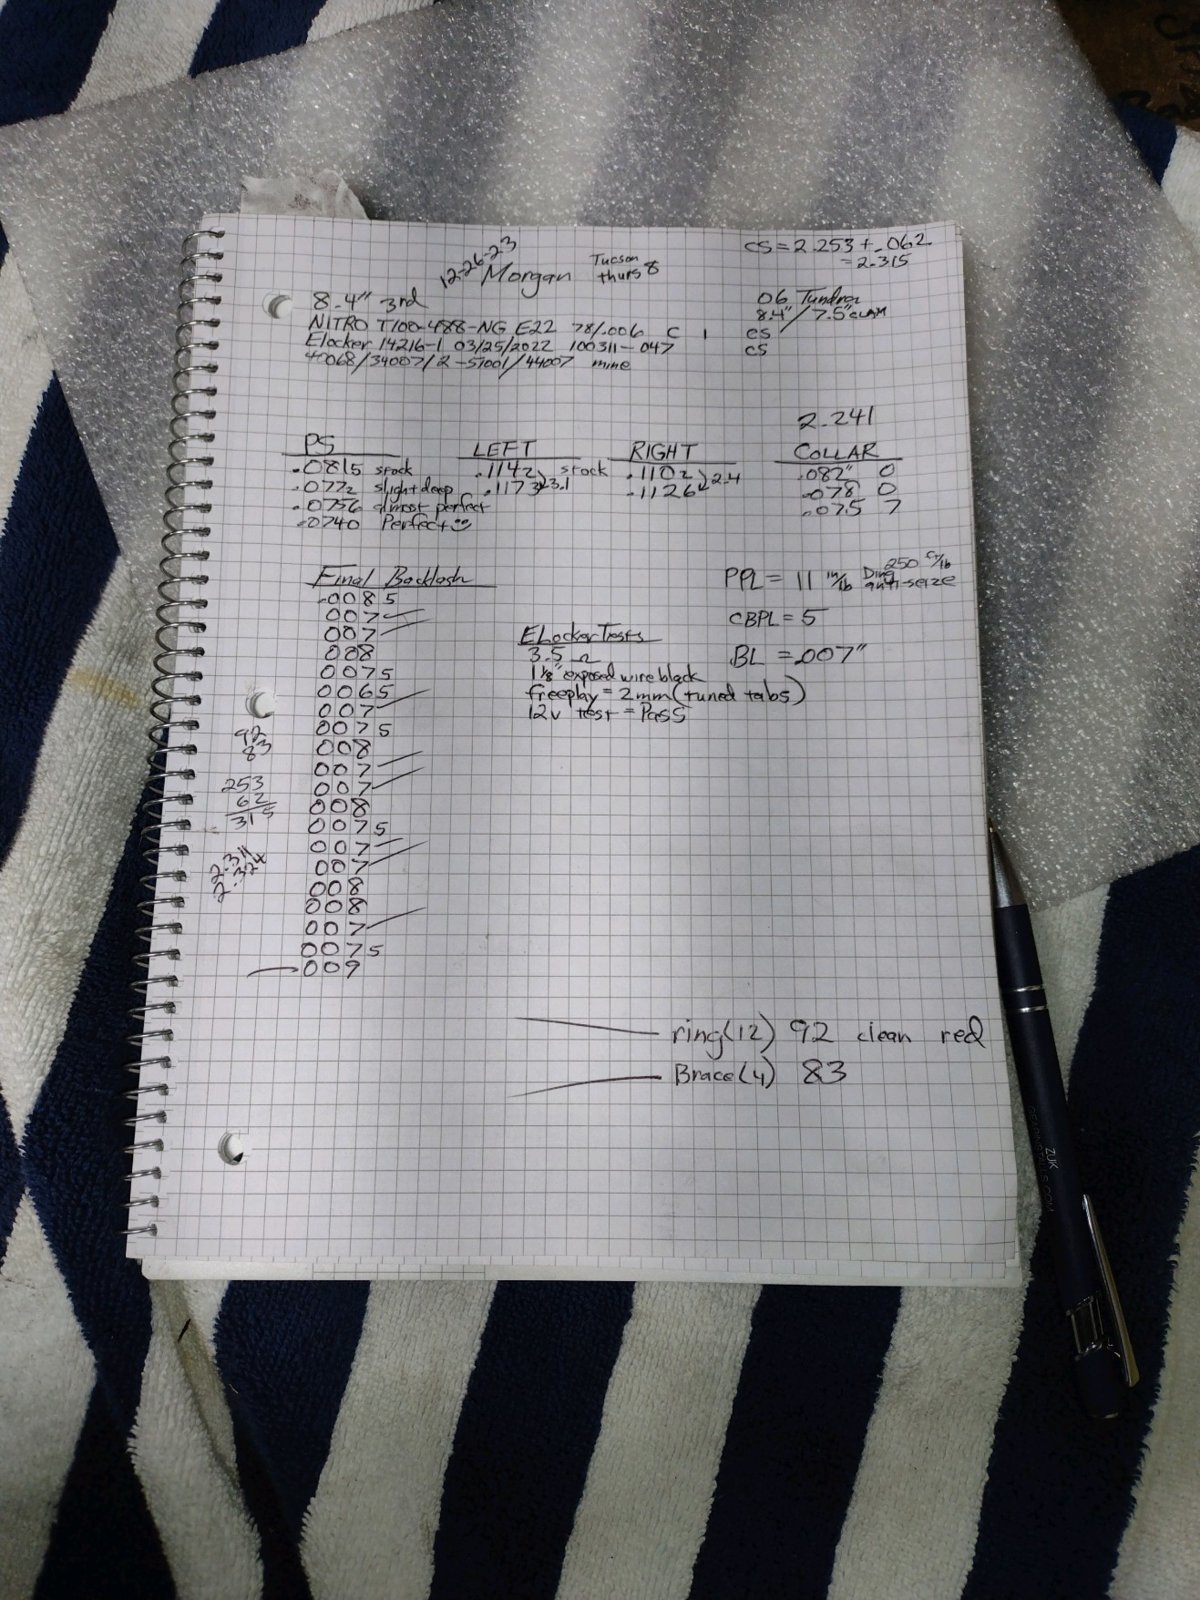 12-26-23
Morgan
Tucson
thurs 8
CS = 2.253 + .062
= 2.315
8.4" 3rd
NITRO T100-488-NG E22 78/.006 C 1
Elocker 14216-1 03/25/2022 100311-047
44068/34007/2-51001/44007 mine
06 Tundra
8.4"/7.5" CLAM
CS
CS
2.241
PS
.0815 stock
.0772 slight deep
.0756 almost perfect
.0740 Perfect
LEFT
.1142 stock
.1173 3.1
RIGHT
.1102 2.4
.1126
COLLAR
.082" 0
.078 0
.075 7
Final Backlash
.0085
007
007
008
0075
0065
007
0075
008
007
007
008
0075
007
007
008
008
007
0075
009
92
83
253
62
315
2.311
2.324
ELocker Tests
3.5 Ω
1 1/8" exposed wire black
freeplay = 2mm (tuned tabs)
12v test = Pass
PPL = 11 in/lb
250 ft/lb
anti-seize
CBPL = 5
BL = .007"
ring(12) 92 clean red
Brace(4) 83
ZUK